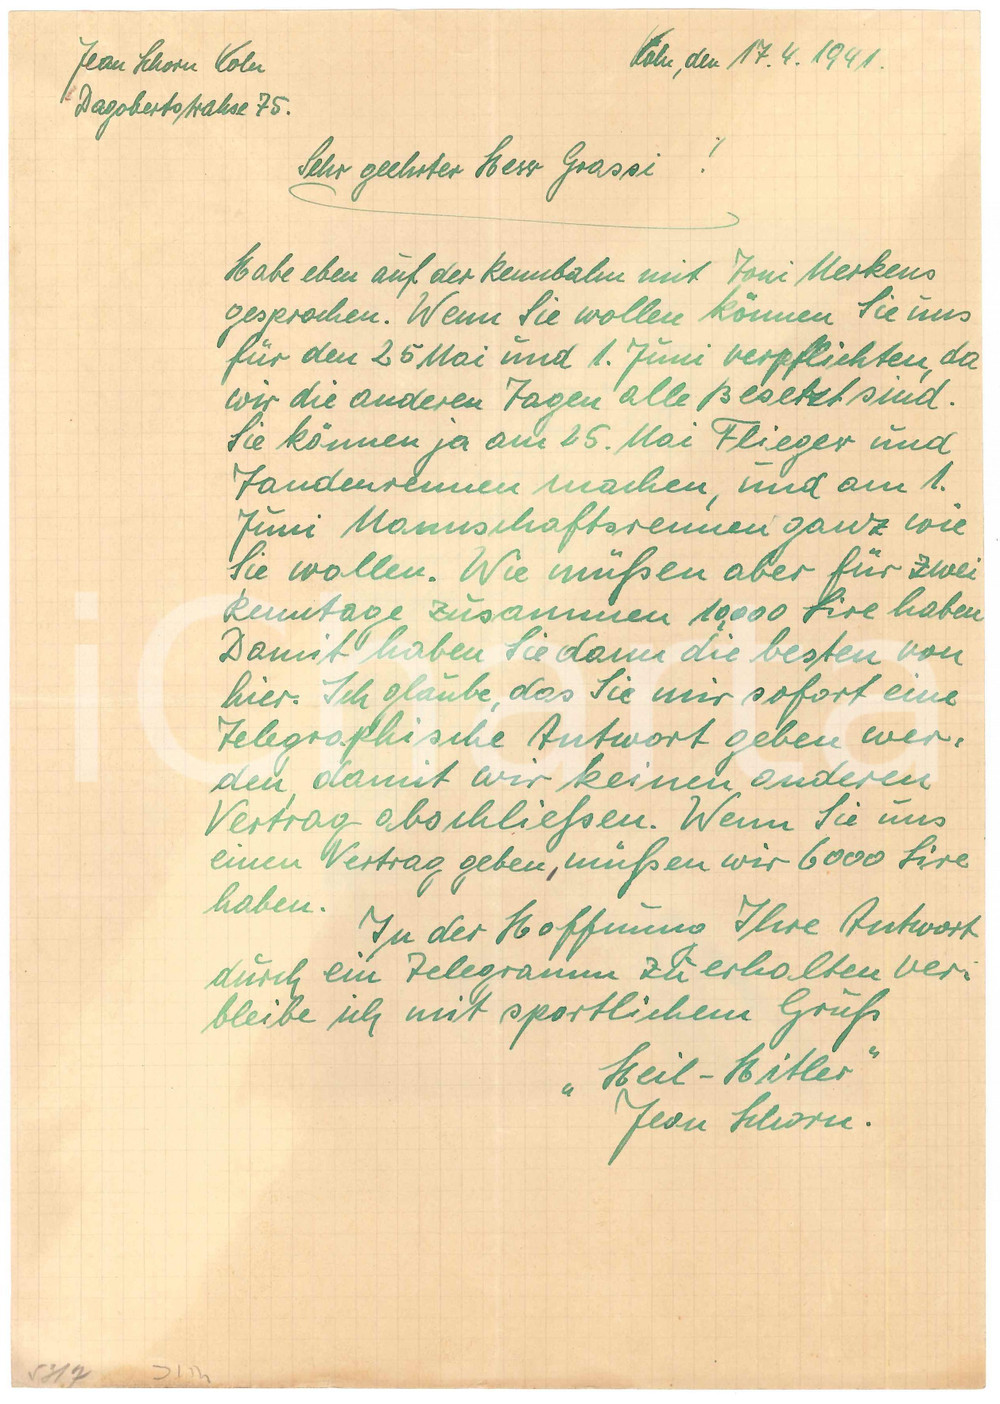 Jean Schorn Köln
Köln, den 17.4.1941.
Dagobertstrahse 75.
Sehr geehrter Herr Grassi !
Habe eben auf der Rennbahn mit Toni Merkens
gesprochen. Wenn Sie wollen können Sie uns
für den 25 Mai und 1. Juni verpflichten, da
wir die anderen Tagen alle Besetzt sind.
Sie können ja am 25. Mai Flieger und
Tandenrennen machen, und am 1.
Juni Mannschaftsrennen ganz wie
Sie wollen. Wie müßen aber für zwei
Renntage zusammen 10,000 Lire haben
Damit haben Sie dann die besten von
hier. Ich glaube, das Sie mir sofort eine
Telegraphische Antwort geben wer-
den, damit wir keinen anderen
Vertrag abschließen. Wenn Sie uns
einen Vertrag geben, müßen wir 6000 Lire
haben.
In der Hoffnung Ihre Antwort
durch ein Telegramm zu erhalten ver-
bleibe ich mit sportlichem Gruß
„Heil-Hitler"
Jean Schorn.
iCharta